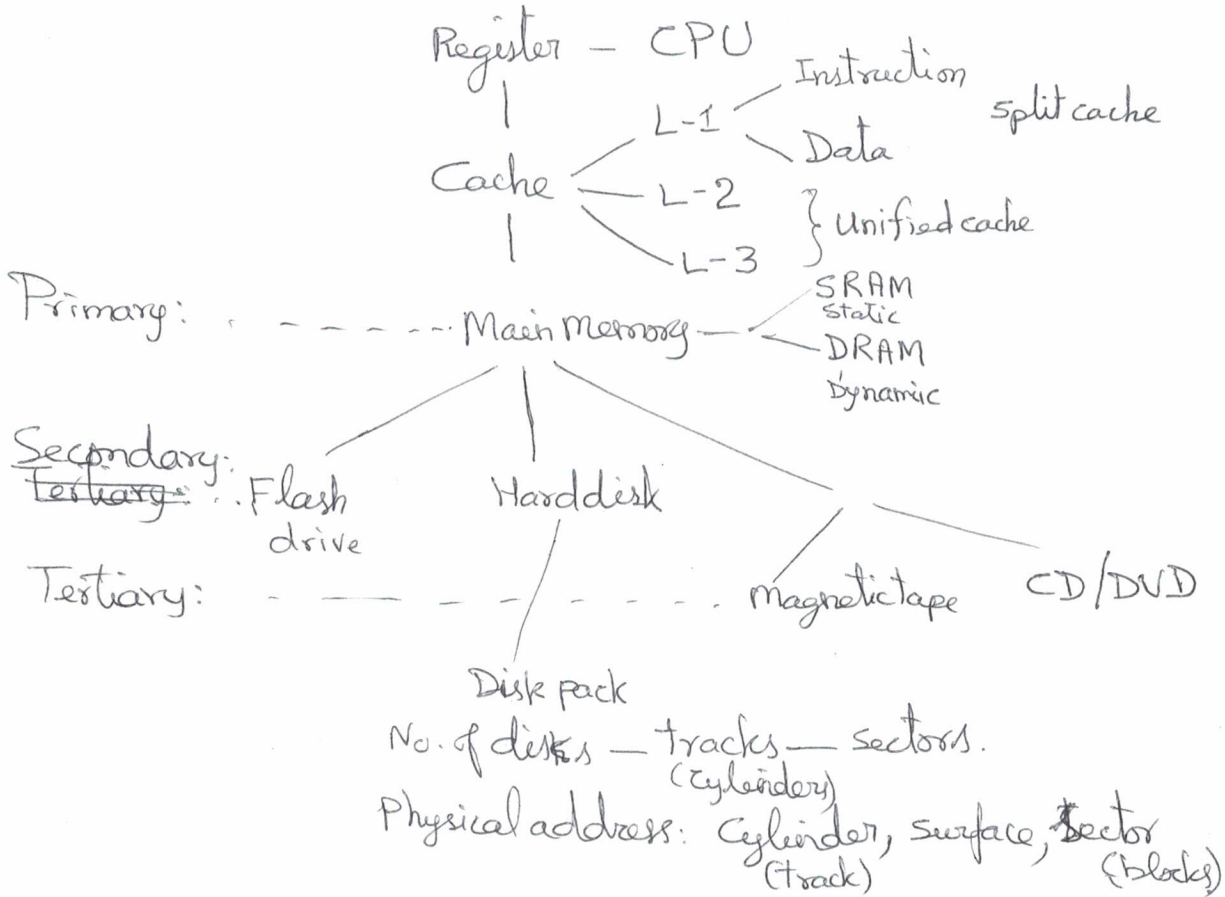 Register - CPU
Instruction
L-1
split cache
Data
Cache
L-2
} Unified cache
L-3
SRAM
static
Primary: . - - - - - - Main memory
DRAM
Dynamic
Secondary:
Tertiary: . . Flash
drive
Harddisk
Tertiary: - — - - - - - . Magnetic tape
CD/DVD
Disk pack
No. of disks — tracks — sectors.
(cylinders)
Physical address: Cylinder, surface, sector
(track)
(blocks)